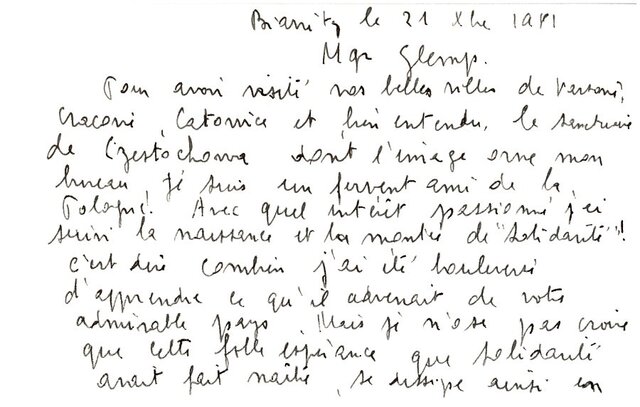 Biarritz le 21 Xbre 1981
Mgr Glemp.
Pour avoir visité vos belles villes de Varsovie,
Cracovie, Catowice et bien entendu, le sanctuaire
de Czestochowa dont l'image orne mon
bureau, je suis un fervent ami de la
Pologne. Avec quel intérêt passionné j'ai
suivi la naissance et la montée de "Solidarité"!
c'est dire combien j'ai été bouleversé
d'apprendre ce qu'il advenait de votre
admirable pays. Mais je n'ose pas croire
que cette folle espérance que Solidarité
avait fait naître, se dissipe ainsi en